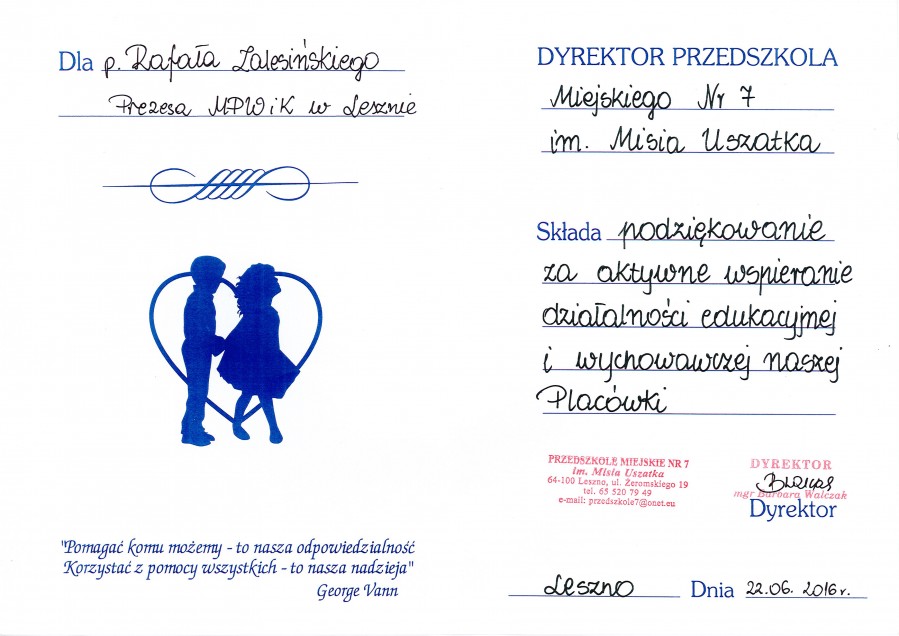 Dla p. Rafała Zalesińskiego
Prezesa MPWiK w Lesznie
"Pomagać komu możemy - to nasza odpowiedzialność
Korzystać z pomocy wszystkich - to nasza nadzieja"
George Vann
DYREKTOR PRZEDSZKOLA
Miejskiego Nr 7
im. Misia Uszatka
Składa podziękowanie
za aktywne wspieranie
działalności edukacyjnej
i wychowawczej naszej
Placówki
PRZEDSZKOLE MIEJSKIE NR 7
im. Misia Uszatka
64-100 Leszno, ul. Żeromskiego 19
tel. 65 520 79 49
e-mail: przedszkole7@onet.eu
DYREKTOR
mgr Barbara Walczak
Dyrektor
Leszno Dnia 22.06. 2016r.